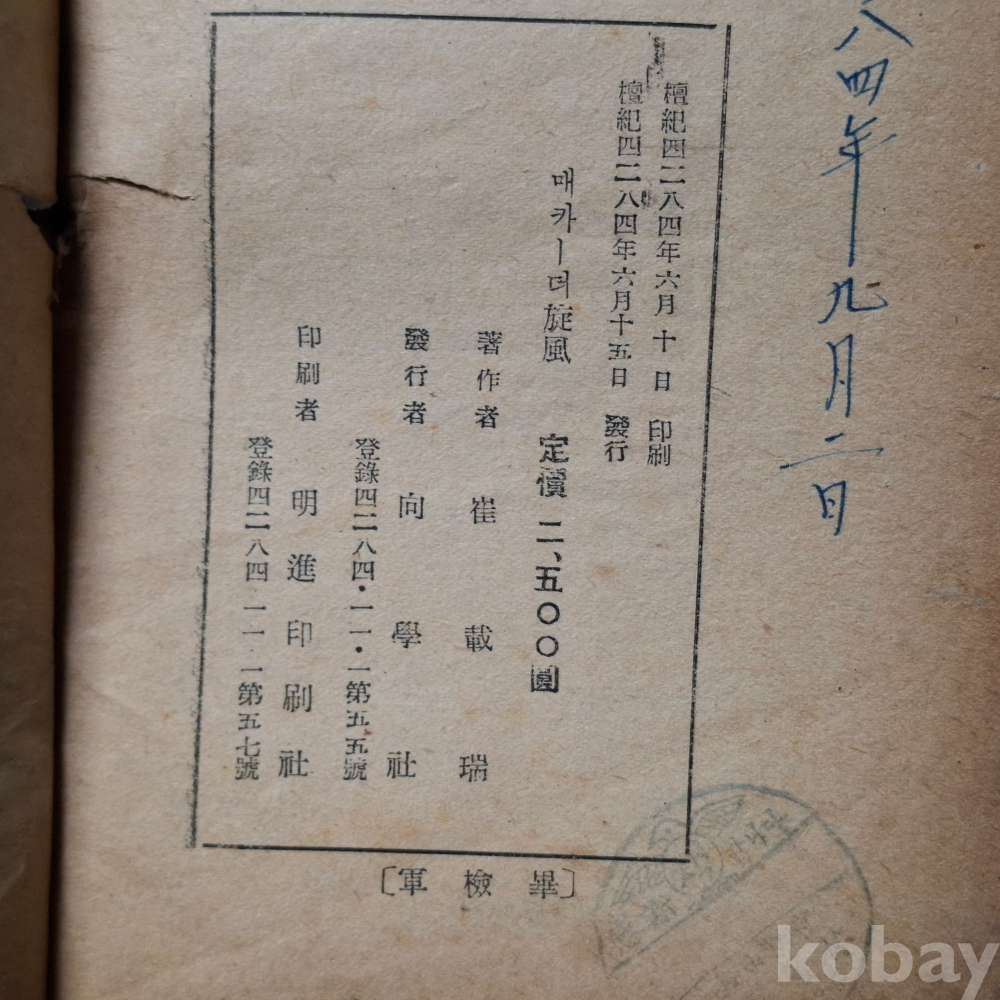 八四年九月二日
檀紀四二八四年六月十日 印刷
檀紀四二八四年六月十五日 發行
매카ー더旋風 定價 二、五〇〇圓
著作者 崔載瑞
發行者 向學社
登錄四二八四・一一・一第五五號
印刷者 明進印刷社
登錄四二八四 一一、一第五七號
〔軍檢畢〕
kobay